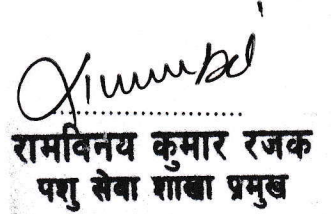 रामविनय कुमार रजक
पशु सेवा शाखा प्रमुख